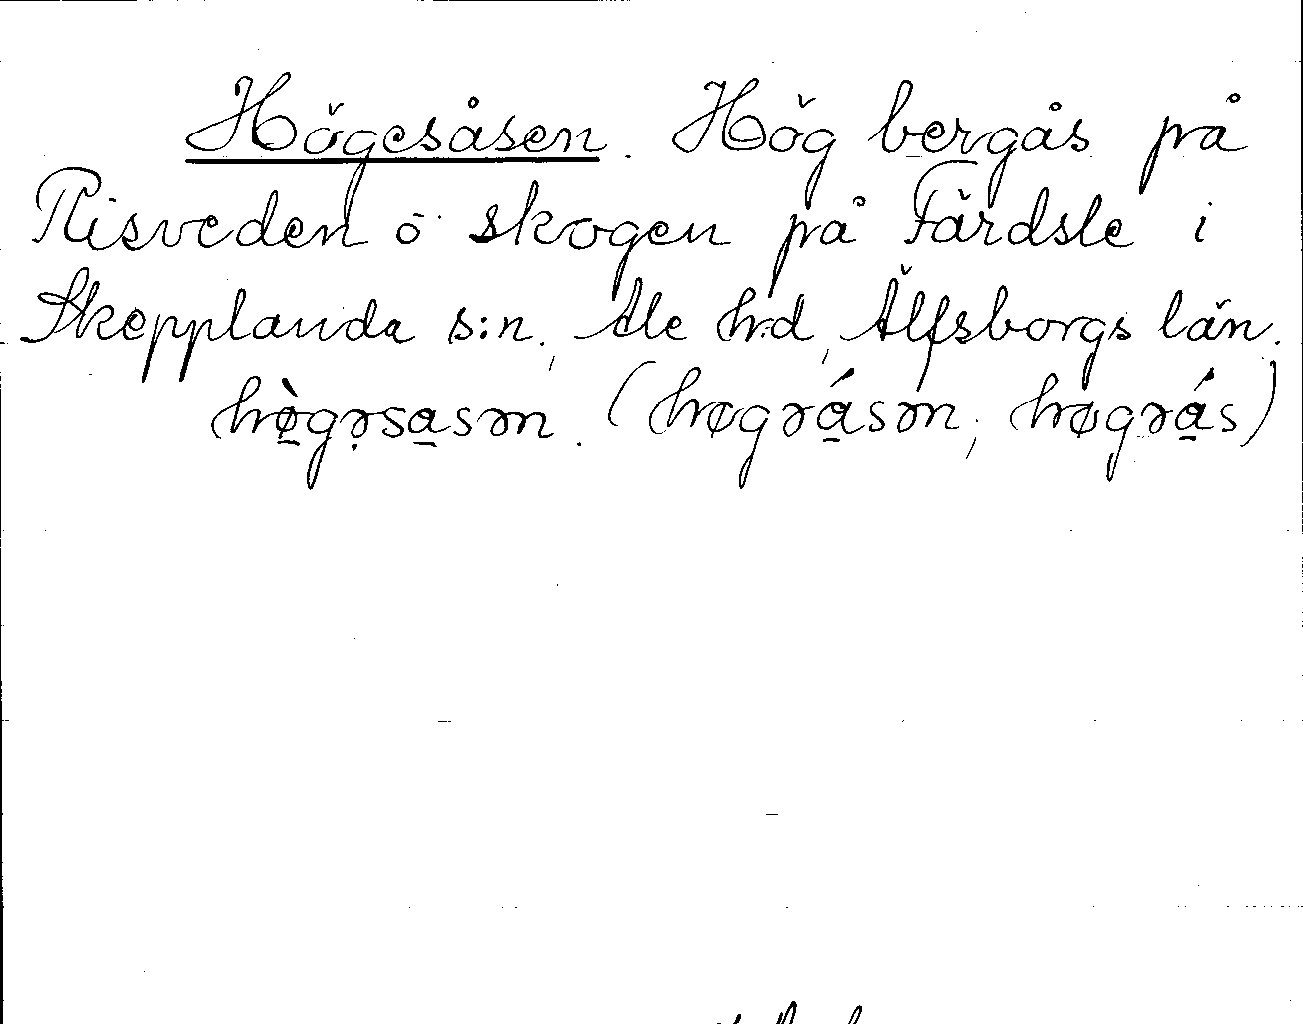 Högesåsen. Hög bergås på
Risveden ö skogen på Färdsle i
Skepplanda s:n, Ale h:d, Älfsborgs län.
hø̀gəsa̲sən. (høgəá̲sən, høgəá̲s)